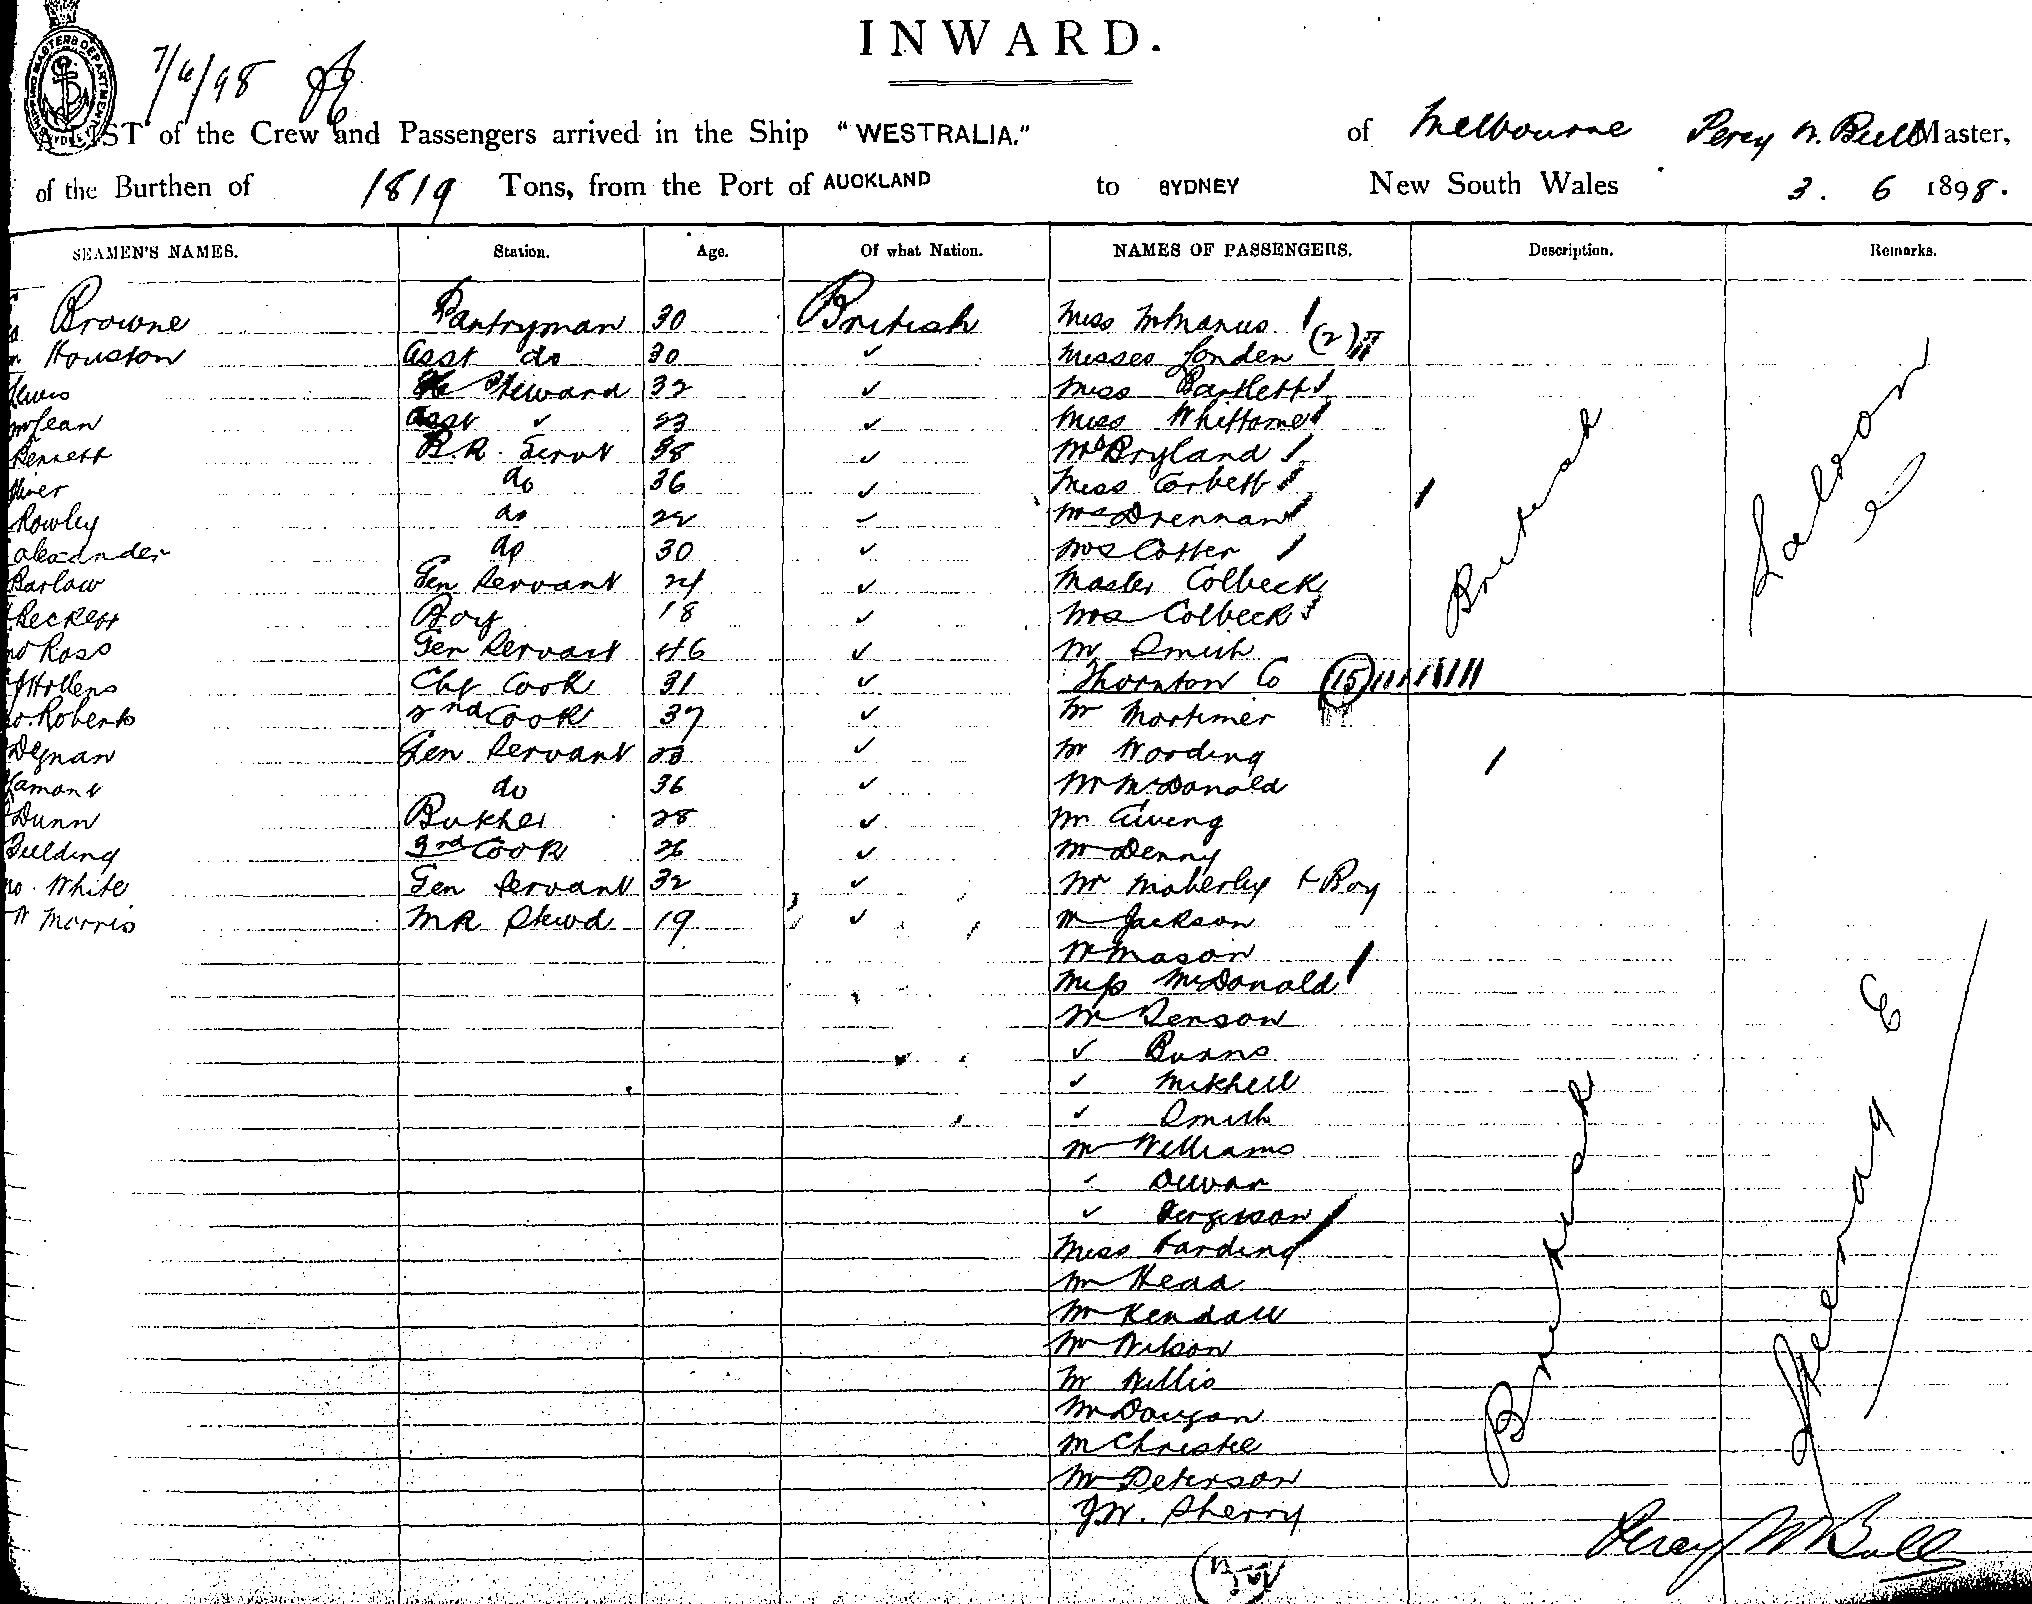 INWARD.
7/6/98
A LIST of the Crew and Passengers arrived in the Ship "WESTRALIA." of Melbourne Percy W. Bull Master,
of the Burthen of 1819 Tons, from the Port of AUCKLAND to SYDNEY New South Wales 3. 6 1898.
SEAMEN'S NAMES. Station. Age. Of what Nation. NAMES OF PASSENGERS. Description. Remarks.
Browne Pantryman 30 British Miss McManus
Houston Asst do 30 ✓ Misses Londen (2)
Lewis Steward 32 ✓ Miss Bartlett
McLean Asst ✓ 23 ✓ Miss Whittome
Bennett B.R. Servt 38 ✓ Bryland
do 36 ✓ Miss Corbett
Rowley do 22 ✓ Mrs Drennan
Alexander do 30 ✓ Mrs Cotter
Barlow Gen Servant 24 ✓ Master Colbeck
Beckett Boy 18 ✓ Mrs Colbeck
Ross Gen Servant 46 ✓ Mr Smith
Hollens Chf Cook 31 ✓ Thornton Co (15)
Roberts 2nd Cook 37 ✓ Mr Mortimer
Degnan Gen Servant 23 ✓ Mr Wording
Lamont do 36 ✓ Mr McDonald
Dunn Butcher 28 ✓ Mr
Feilding 3rd Cook 26 ✓ Mr Denny
White Gen Servant 32 ✓ Mr Moberley & Boy
W Morris MR Stewd 19 ✓ Mr Jackson
Mr Mason
Miss McDonald
Mr Senson
✓ Burns
✓ Mitchell
✓ Smith
Mr Williams
✓ Dewar
✓ Ferguson
Miss Farding
Mr Head
Mr Kendall
Mr Wilson
Mr Willis
Mr Dougan
Mr Christie
Mr Peterson
J.W. Sherry
British
Saloon
British
Steerage
Percy W Bull